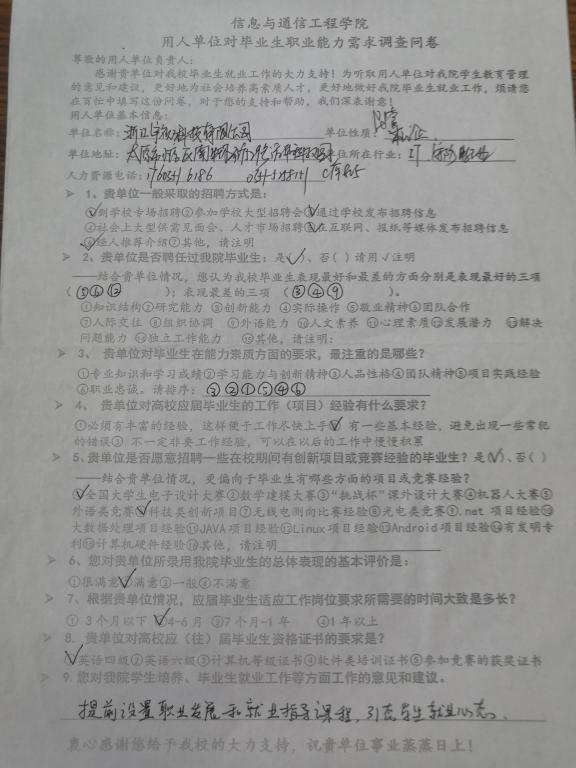 信息与通信工程学院
用人单位对毕业生职业能力需求调查问卷
尊敬的用人单位负责人:
感谢贵单位对我校毕业生就业工作的大力支持!为听取用人单位对我院学生教育管理
的意见和建议,更好地为社会培养高素质人才,更好地做好我院毕业生就业工作,烦请您
在百忙中填写这份问卷,对于您的支持和帮助,我们深表谢意!
用人单位基本信息:
单位名称: 单位性质:
单位地址: 单位所在行业:
人力资源电话:
➤ 1、贵单位一般采取的招聘方式是:
①到学校专场招聘②参加学校大型招聘会③通过学校发布招聘信息
④社会上大型供需见面会、人才市场招聘⑤在互联网、报纸等媒体发布招聘信息
⑥经人推荐介绍⑦其他,请注明
➤ 2、贵单位是否聘任过我院毕业生:是(√)、否( )请用√注明
——结合贵单位情况,您认为我校毕业生表现最好和最差的方面分别是表现最好的三项
(⑤⑥⑫ );表现最差的三项 (③④⑨ )。
①知识结构②研究能力 ③创新能力 ④实际操作 ⑤敬业精神⑥团队合作
⑦人际交往 ⑧组织协调 ⑨外语能力 ⑩人文素养 ⑪心理素质⑫发展潜力 ⑬解决
问题能力 ⑭独立工作能力 ⑮其他,请注明:
➤ 3、 贵单位对毕业生在能力素质方面的要求,最注重的是哪些?
①专业知识和学习成绩②学习能力与创新精神③人品性格④团队精神⑤项目实践经验
⑥职业忠诚。请排序: ③②①⑤④⑥
➤ 4、 贵单位对高校应届毕业生的工作(项目)经验有什么要求?
①必须有丰富的经验,这样便于工作尽快上手② 有一些基本经验,避免出现一些常犯
的错误③ 不一定非要工作经验,可以在以后的工作中慢慢积累
➤ 5、贵单位是否愿意招聘一些在校期间有创新项目或竞赛经验的毕业生?是(√)、否( )
——结合贵单位情况,更偏向于毕业生有哪些方面的项目或竞赛经验?
①全国大学生电子设计大赛②数学建模大赛③“挑战杯”课外设计大赛④机器人大赛⑤
外语类竞赛⑥科技类创新项目⑦无线电测向比赛经验⑧光电类竞赛⑨.net 项目经验⑩
大数据处理项目经验⑪JAVA项目经验⑫Linux项目经验⑬Android项目经验⑭有发明专
利⑮计算机硬件经验⑯其他,请注明
➤ 6、您对贵单位所录用我院毕业生的总体表现的基本评价是:
①很满意②满意③一般④不满意
➤ 7、根据贵单位情况,应届毕业生适应工作岗位要求所需要的时间大致是多长?
① 3个月以下 ②4-6月 ③7个月-1年 ④1年以上
➤ 8. 贵单位对高校应(往)届毕业生资格证书的要求是?
①英语四级②英语六级③计算机等级证书④软件类培训证书⑤参加竞赛的获奖证书
➤ 9.您对我院学生培养、毕业生就业工作等方面工作的意见和建议。
提前设置职业发展和就业指导课程,引志学生就业心态.
衷心感谢您给予我校的大力支持,祝贵单位事业蒸蒸日上!